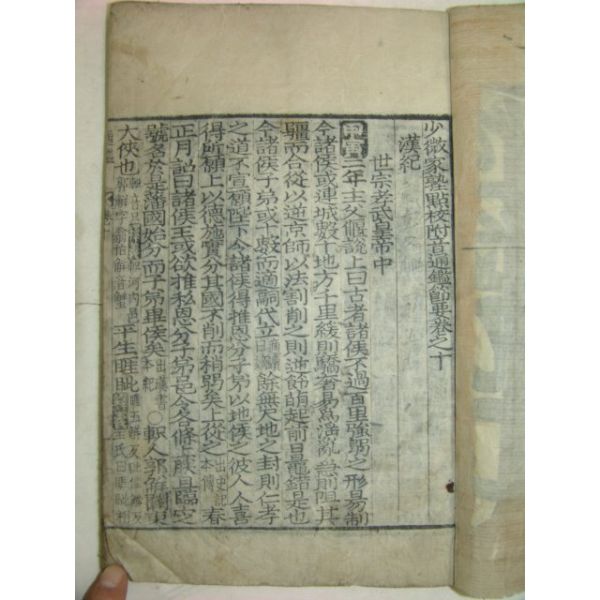 少微家塾點校附音通鑑節要卷之十
漢紀
世宗孝武皇帝中
甲寅二年主父偃說上曰古者諸侯不過百里強弱之形易制
今諸侯或連城數十地方千里緩則驕奢易爲淫亂急則阻其
彊而合從以逆京師以法割削之則逆節萌起前日鼂錯是也
今諸侯子弟或十數而適嗣代立餘無尺地之封則仁孝
之道不宣願陛下令諸侯得推恩分子弟以地侯之彼人人喜
得所願上以德施實分其國不削而稍弱矣上從之出史記本傳春
正月詔曰諸侯王或欲推私恩分子弟邑令各條上朕且臨定
號名於是藩國始分而子弟畢侯矣出漢書本紀○軹人郭解關東
大俠也平生睚眦